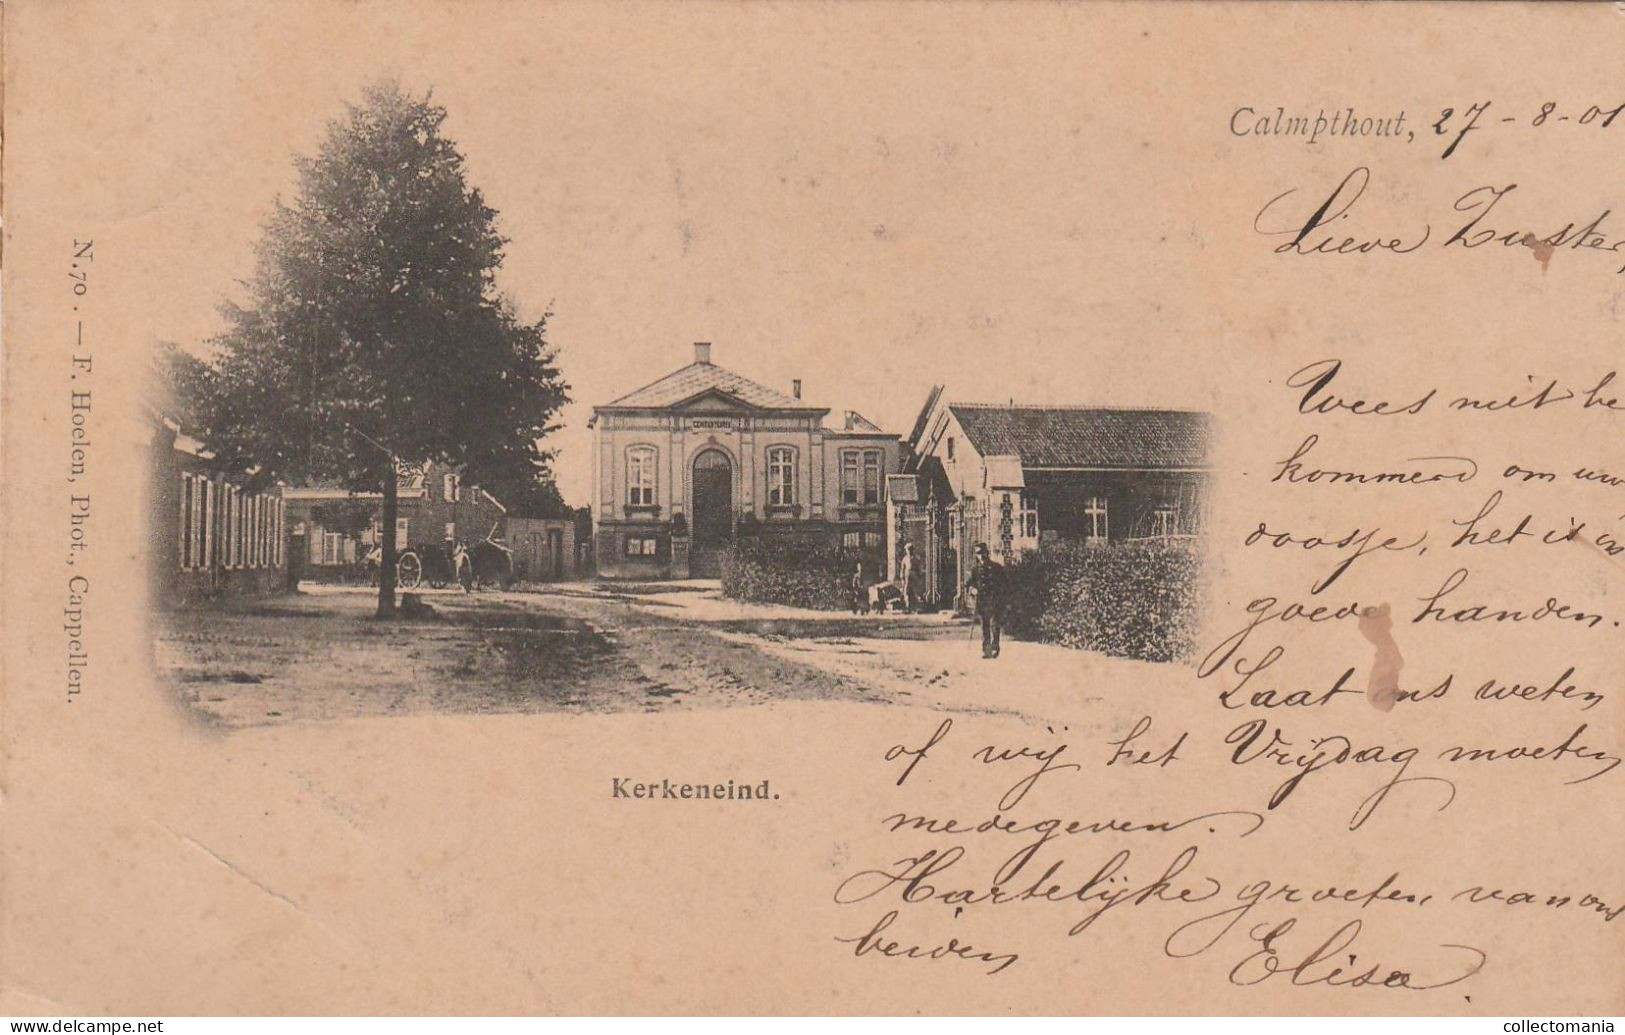 Calmpthout, 27 - 8 - 01
Lieve Zuster,
Wees niet be
kommerd om uw
doosje, het is in
goede handen.
Laat ons weten
of wij het Vrijdag moeten
medegeven.
Hartelijke groeten van ons
beiden Elisa.
Kerkeneind.
N.70. — F. Hoelen, Phot., Cappellen.
www.delcampe.net
collectomania